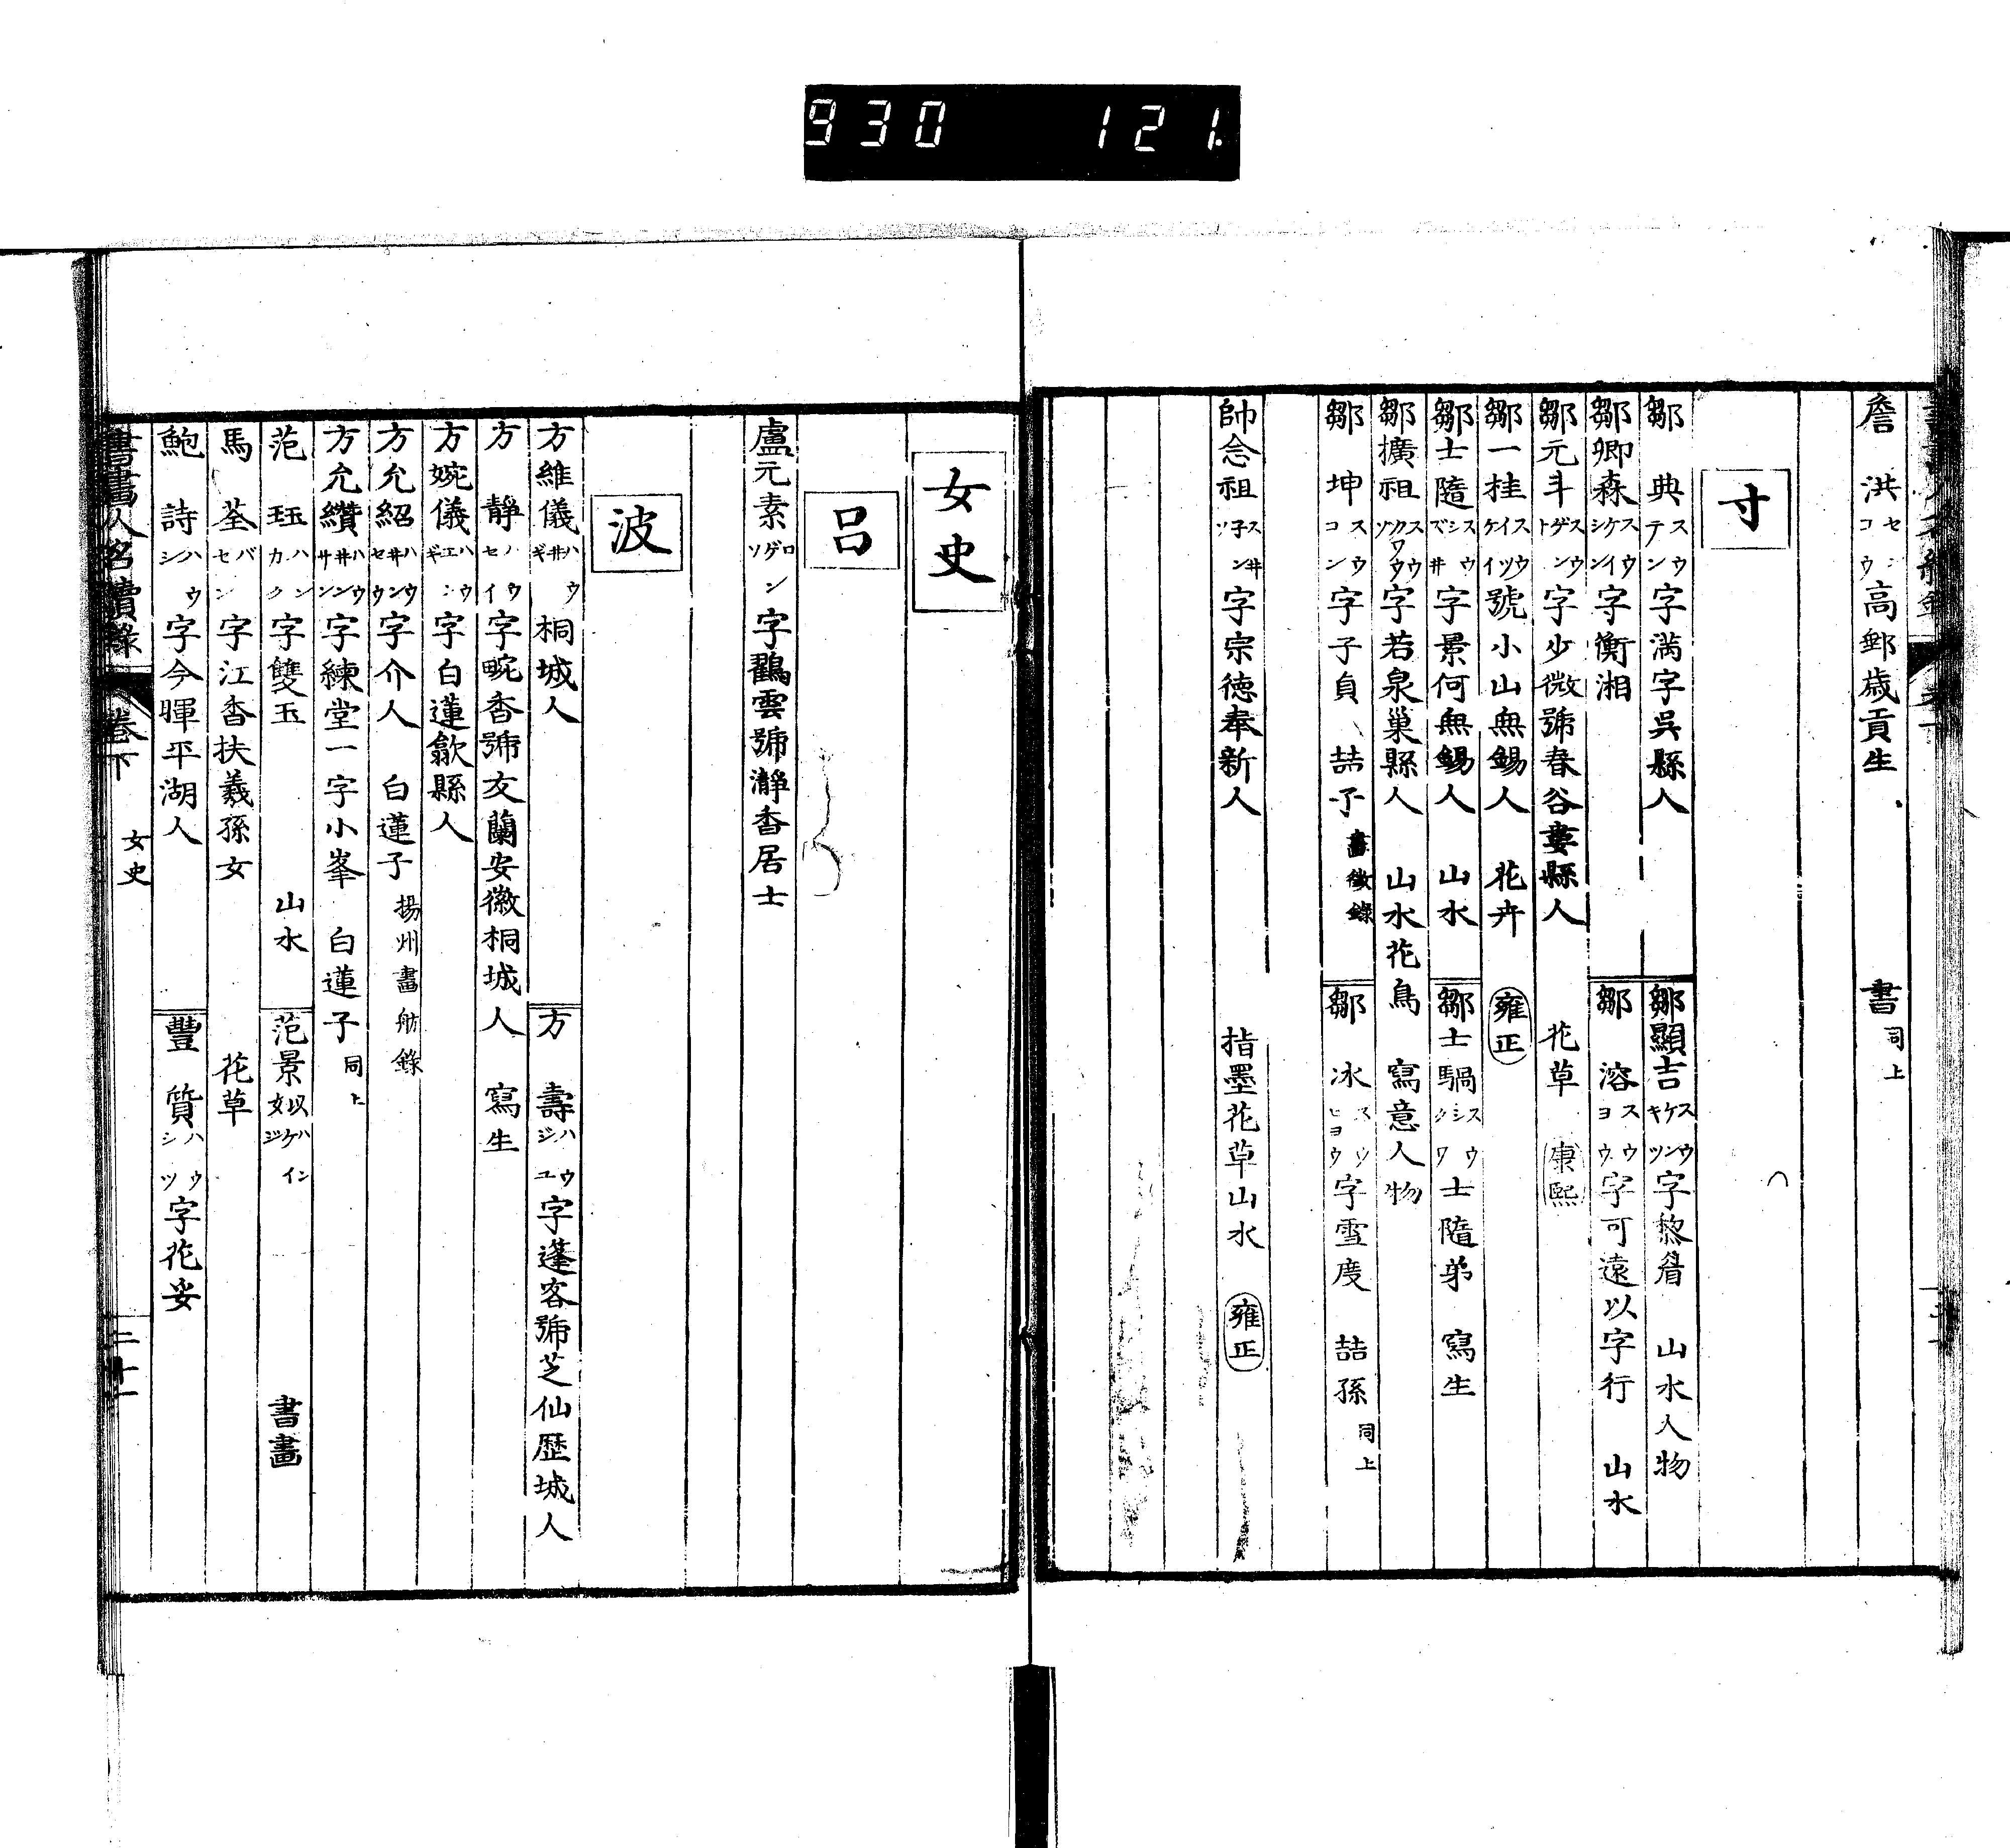 930 121.
詹 洪 高郵歳貢生 書 同上
寸
鄒 典 字満字呉縣人
鄒顯吉 字黎眉 山水人物
鄒卿森 字衡湘
鄒 溶 字可遠以字行 山水
鄒元斗 字少微號春谷婁縣人 花草 康熙
鄒一桂 號小山無錫人 花卉 雍正
鄒士隨 字景何無錫人 山水
鄒士騧 士隨弟 寫生
鄒擴祖 字若泉巢縣人 山水花鳥 寫意人物
鄒 坤 字子貞 喆子 畫徴錄
鄒 冰 字雪度 喆孫 同上
帥念祖 字宗徳奉新人 指墨花草山水 雍正
女史
呂
盧元素 字鸜雲號瀞香居士
波
方維儀 桐城人
方 壽 字蓬客號芝仙歴城人
方 靜 字畹香號友蘭安徽桐城人 寫生
方婉儀 字白蓮歙縣人
方允紹 字介人 白蓮子 揚州畫舫錄
方允纘 字練堂一字小峯 白蓮子 同上
范 珏 字雙玉 山水
范景姒 書畫
馬 荃 字江香扶羲孫女 花草
鮑 詩 字今暉平湖人
豐 質 字花妥
書畫人名續錄 卷下 女史 二十一